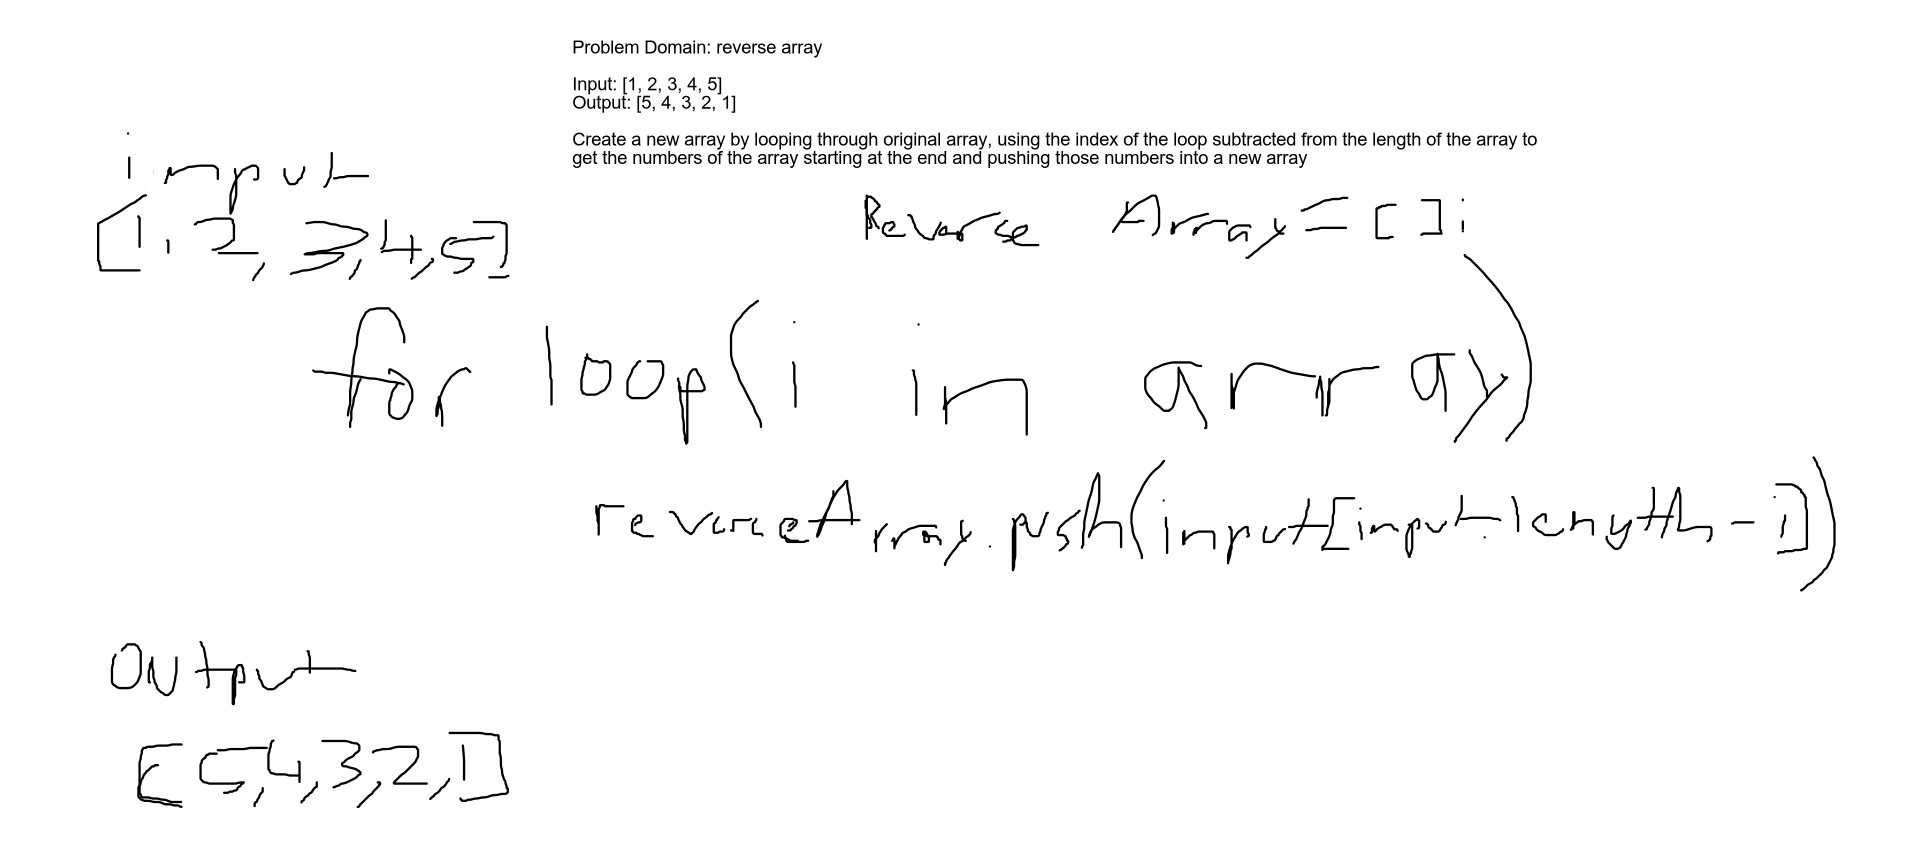 Problem Domain: reverse array
Input: [1, 2, 3, 4, 5]
Output: [5, 4, 3, 2, 1]
Create a new array by looping through original array, using the index of the loop subtracted from the length of the array to
get the numbers of the array starting at the end and pushing those numbers into a new array
input
[1, 2, 3, 4, 5]
Reverse Array = [];
for loop (i in array)
reverseArray.push(input[input.length - i])
Output
[5, 4, 3, 2, 1]